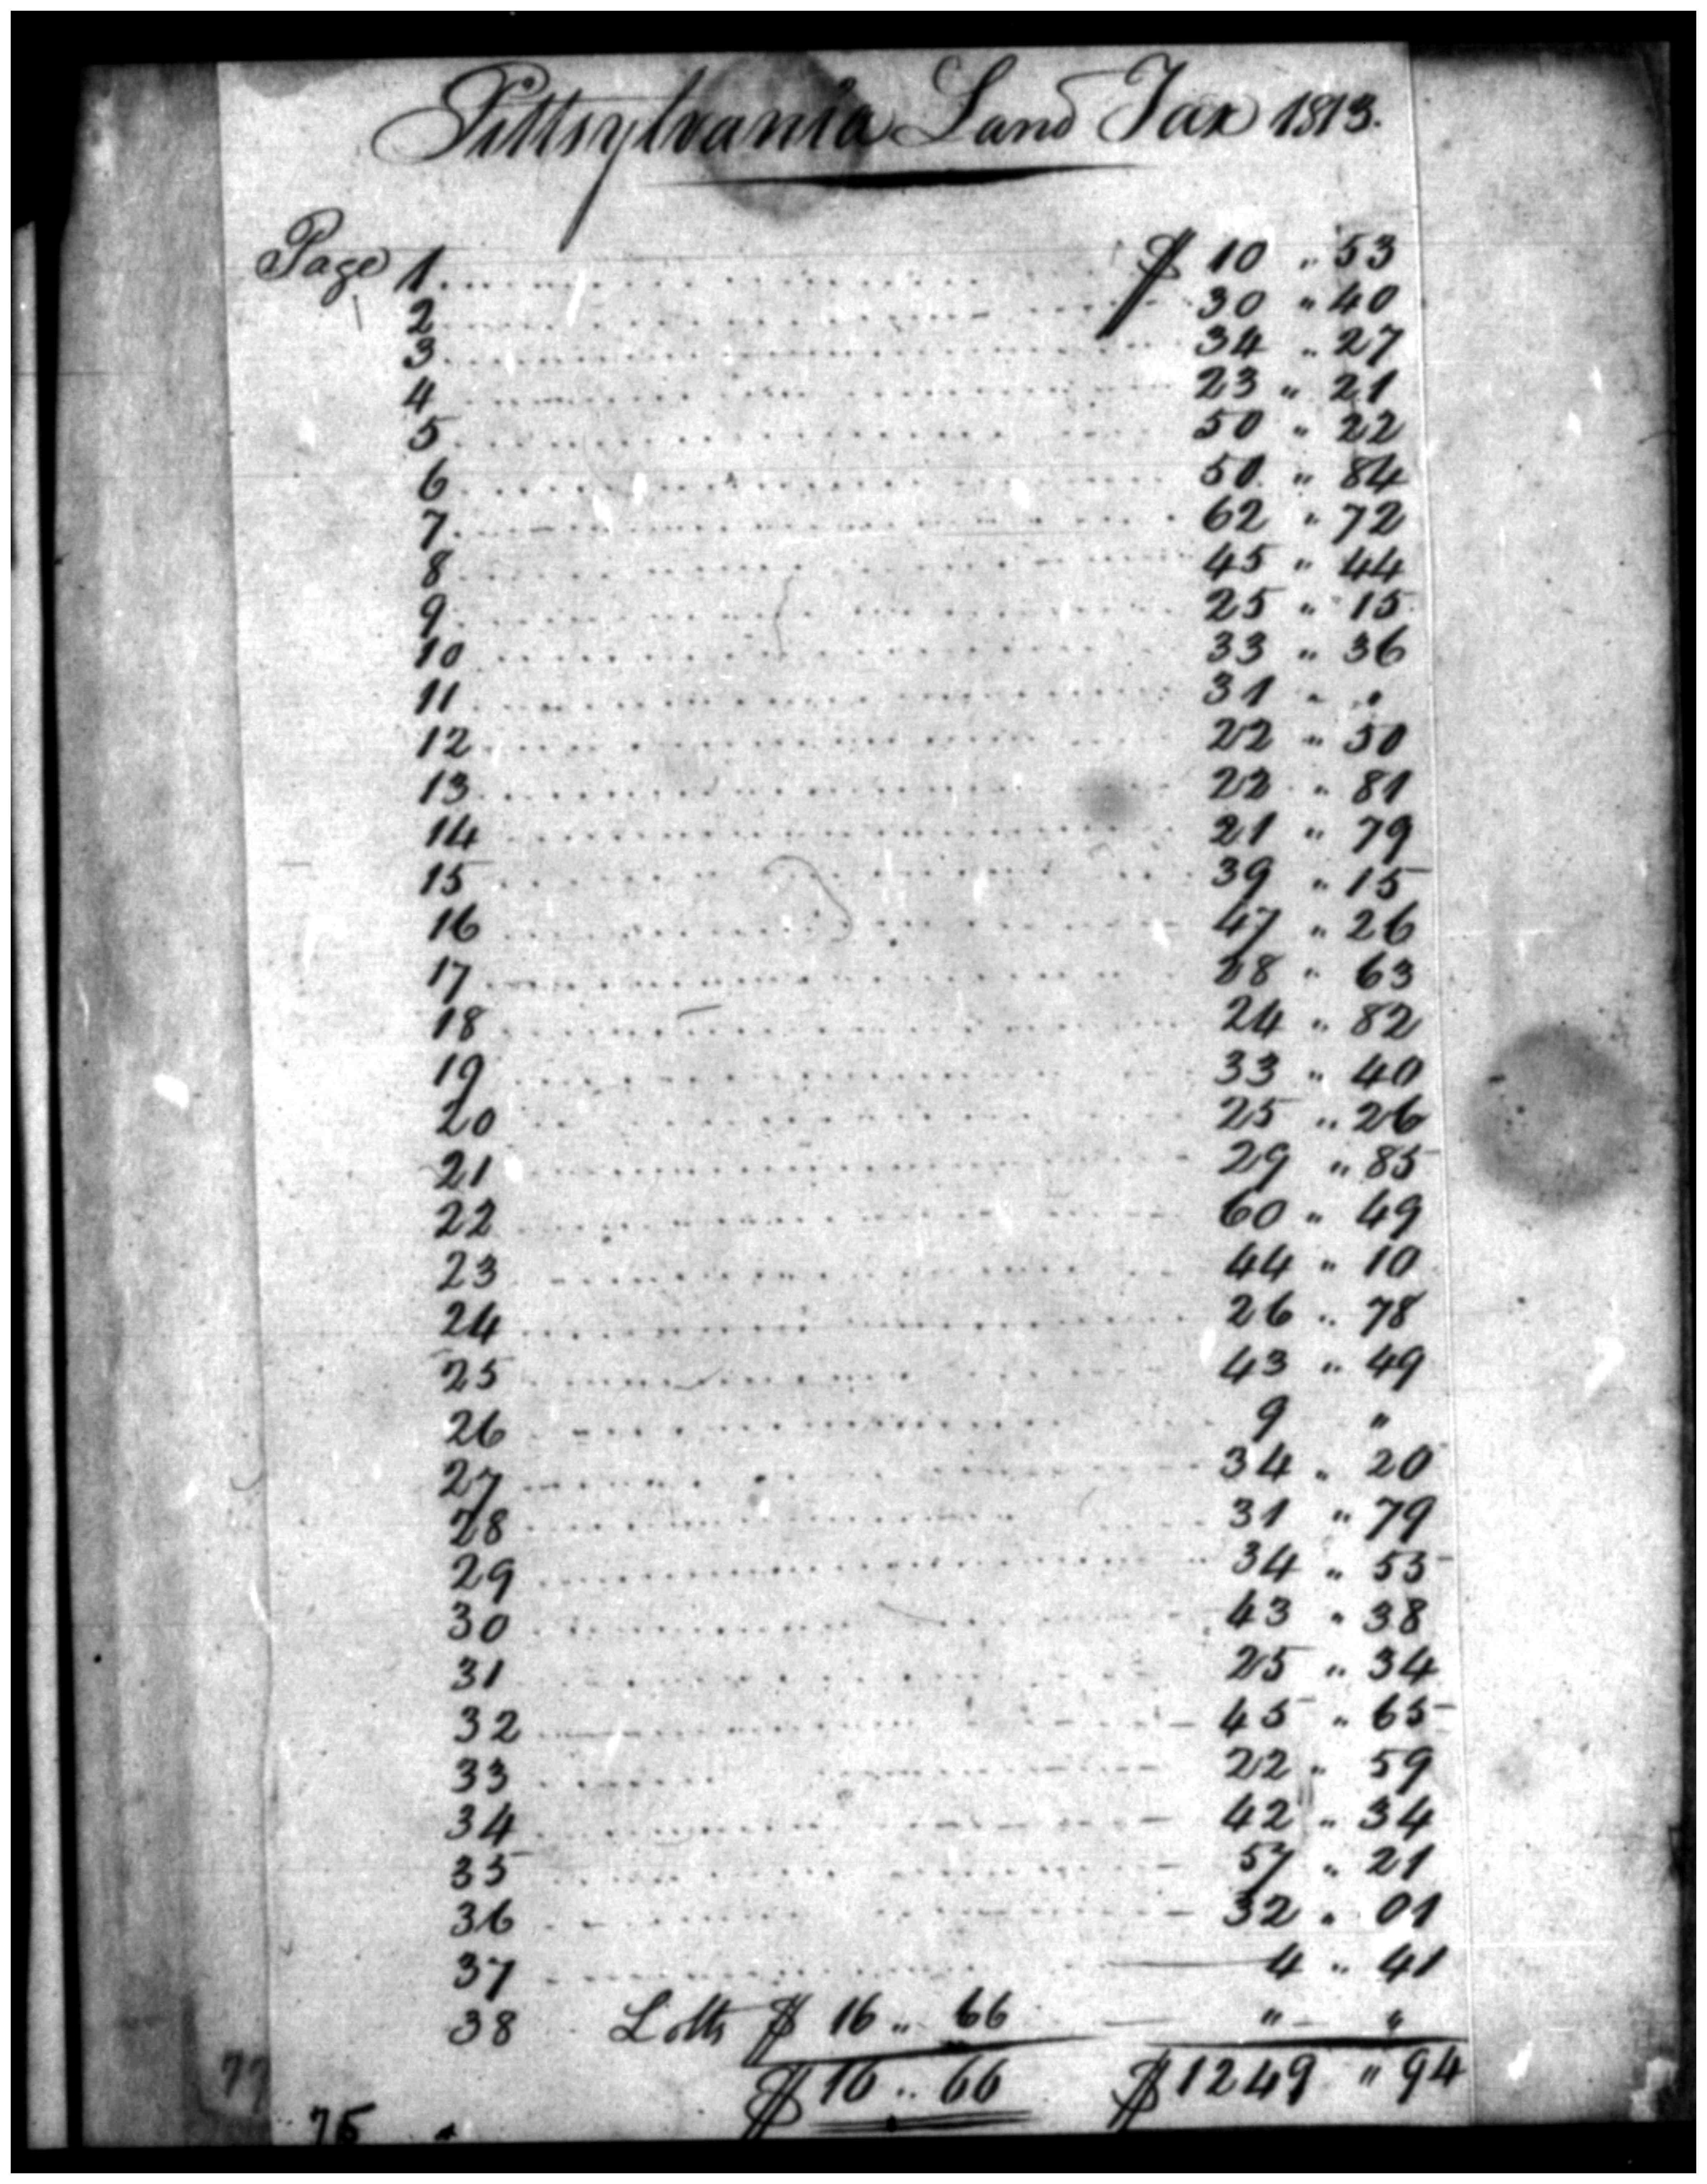 Pittsylvania Land Tax 1813.
Page 1 $ 10 " 53
2 30 " 40
3 34 " 27
4 23 " 21
5 50 " 22
6 50 " 84
7 62 " 72
8 45 " 44
9 25 " 15
10 33 " 36
11 31 " "
12 22 " 50
13 22 " 81
14 21 " 79
15 39 " 15
16 47 " 26
17 28 " 63
18 24 " 82
19 33 " 40
20 25 " 26
21 29 " 85
22 60 " 49
23 44 " 10
24 26 " 78
25 43 " 49
26 9 "
27 34 " 20
28 31 " 79
29 34 " 55
30 43 " 38
31 25 " 34
32 45 " 65
33 22 " 59
34 42 " 34
35 57 " 21
36 32 " 01
37 4 " 41
38 Lotts $ 16 " 66 " "
$ 16 " 66 $ 1249 " 94
77
75